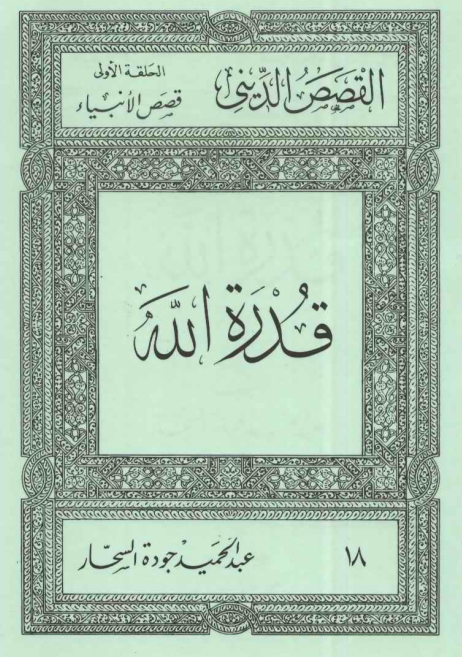 القصص الديني
الحلقة الأولى
قصص الأنبياء
قدرة الله
عبد الحميد جودة السحار
١٨